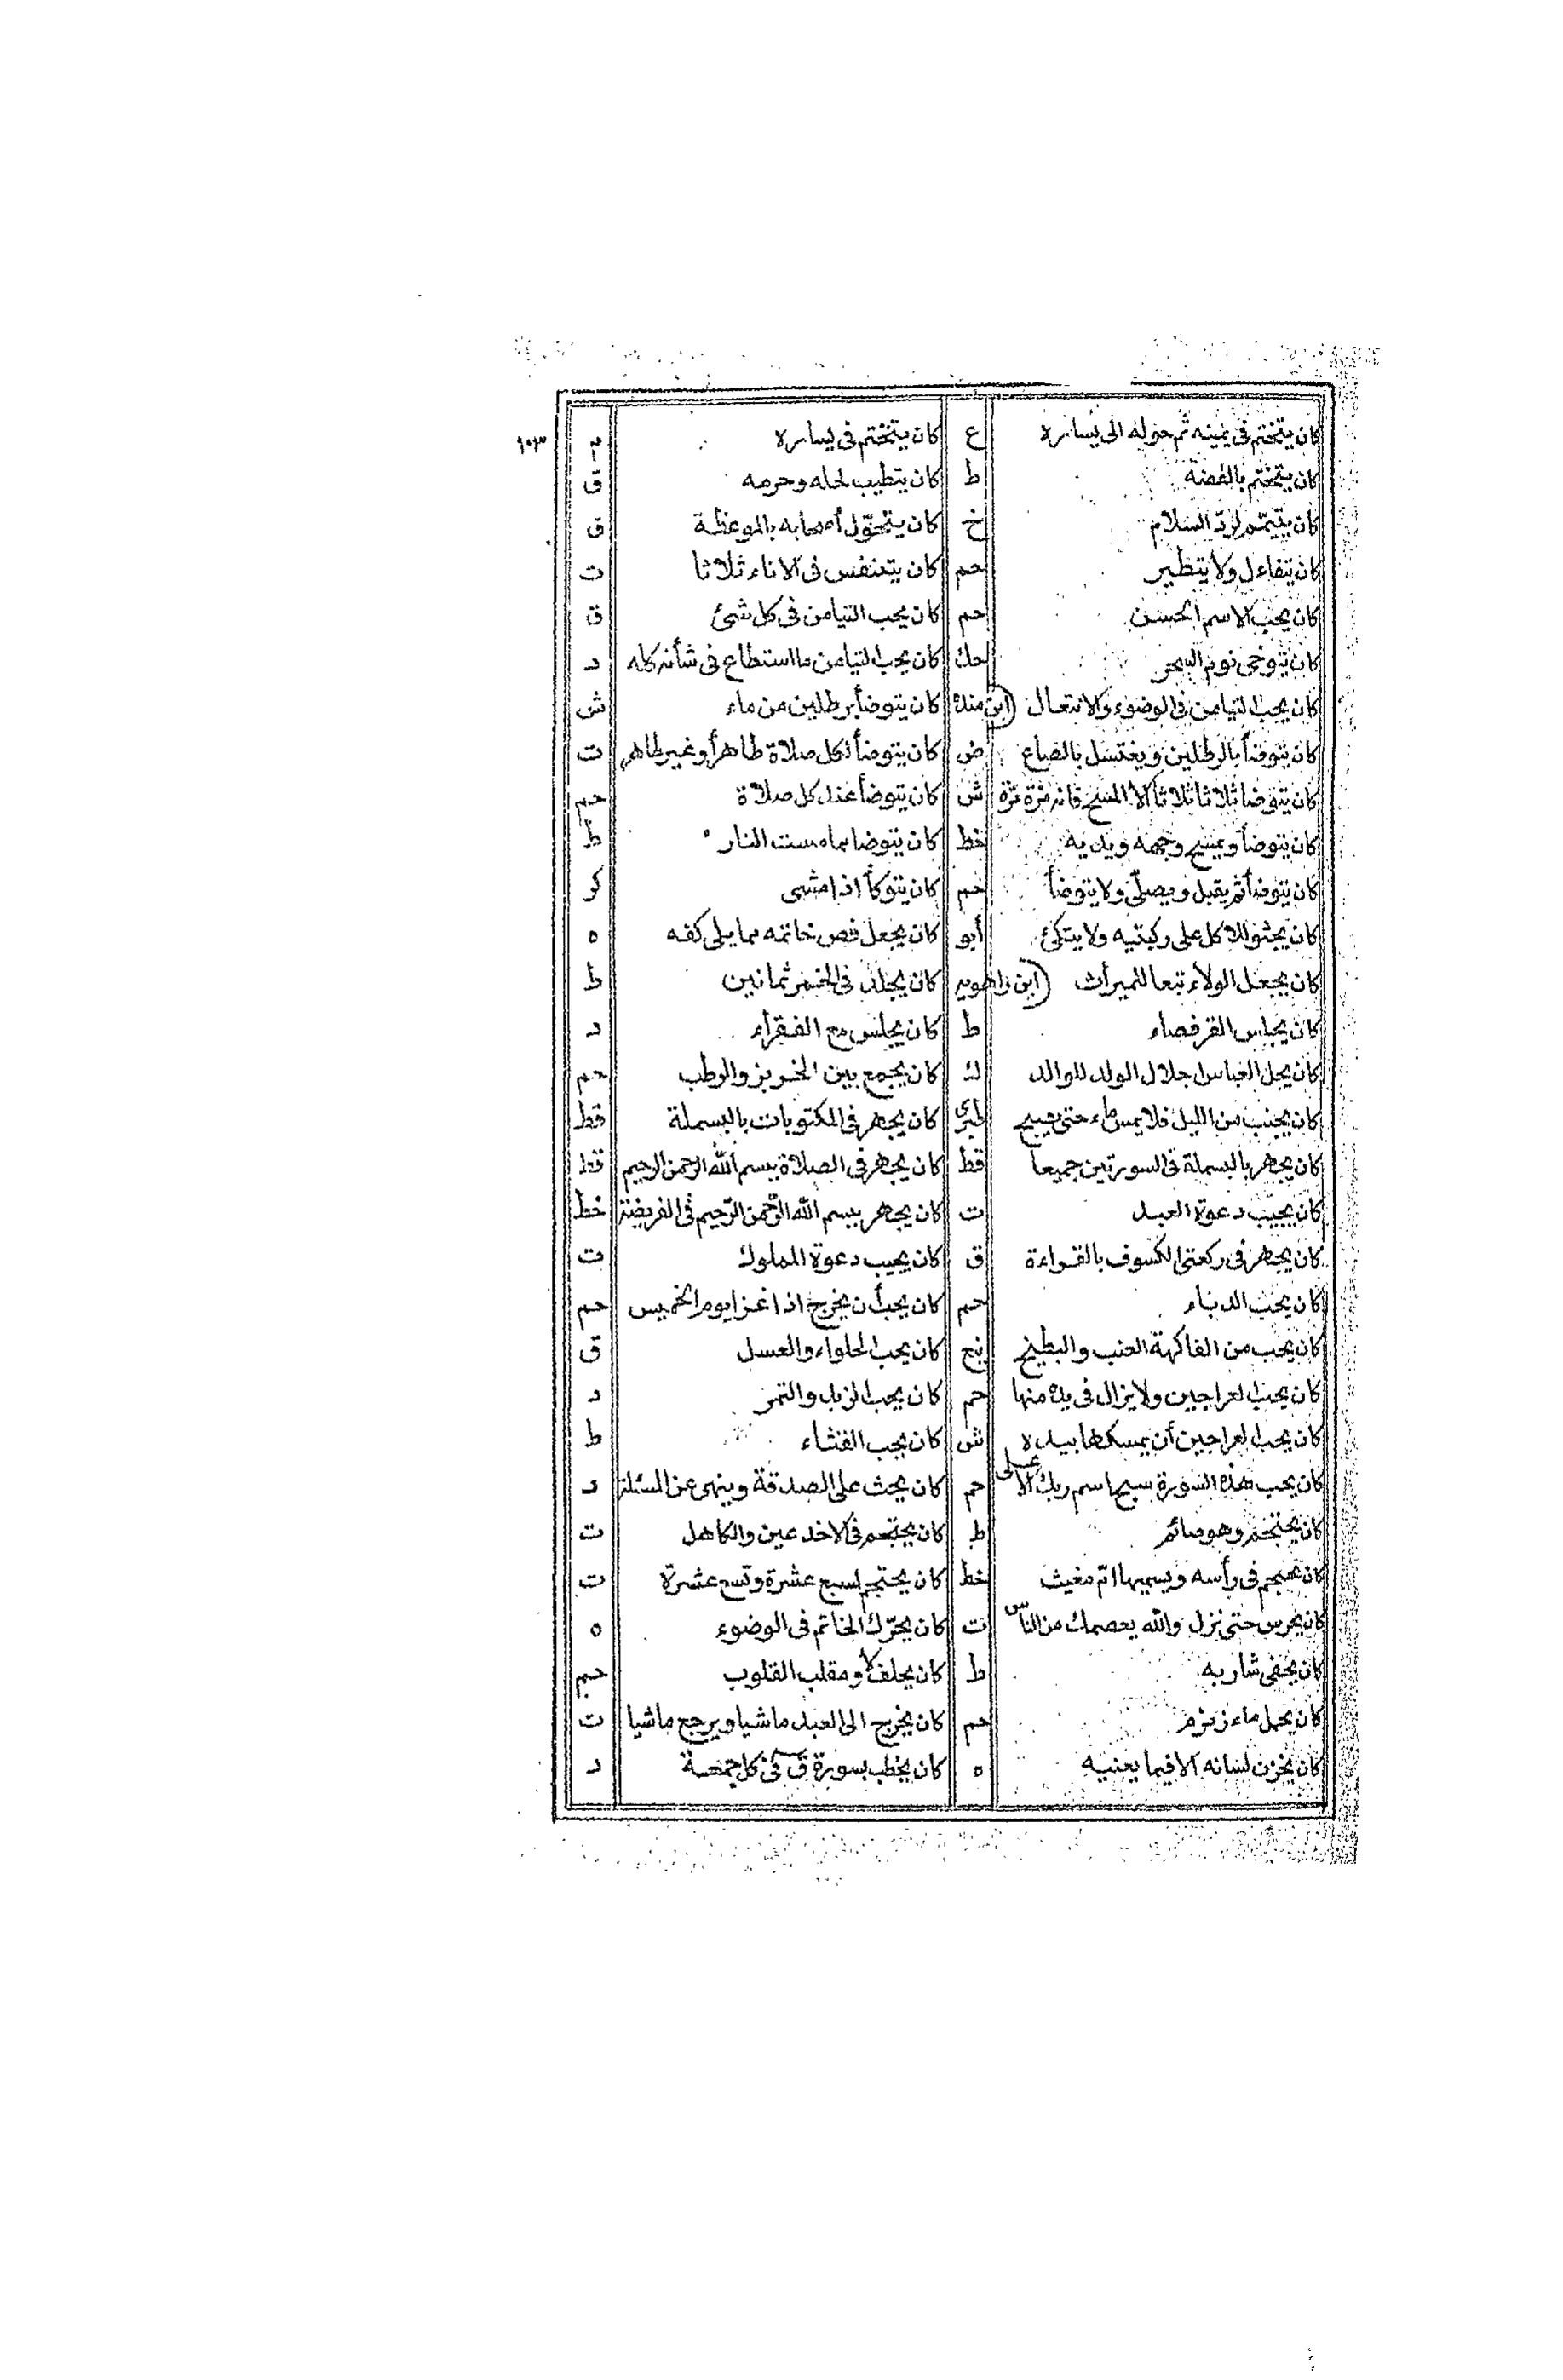 ١٠٣
كان يتختم في يمينه ثم حوله الى يساره | ع | كان يتختم في يساره | م
كان يتختم بالفضة | ط | كان يتطيب لحله وحرمه | ق
كان يتيمّم لردّ السلام | خ | كان يتخوّل أصحابه بالموعظة | ق
كان يتفاءل ولا يتطير | حم | كان يتنفس فى الاناء ثلاثا | ت
كان يحب الاسم الحسن | حم | كان يحب التيامن فى كل شئ | ق
كان يتوخى نوم السحر | حك | كان يحب التيامن ما استطاع فى شأنه كله | د
كان يحب التيامن فى الوضوء والانتعال | (ابن منده | كان يتوضأ برطلين من ماء | ش
كان يتوضأ بالرطلين ويغتسل بالصاع | ض | كان يتوضأ لكل صلاة طاهرأ وغير طاهر | ت
كان يتوضا ثلاثا ثلاثا الا المسح فانه مرّة مرّة | ش | كان يتوضأ عند كل صلاة | حم
كان يتوضأ ويمسح وجهه ويديه | خط | كان يتوضا مما مست النار | ط
كان يتوضأ ثم يقبل ويصلّى ولا يتوضأ | حم | كان يتوكأ اذا مشى | كر
كان يجثو للاكل على ركبتيه ولا يتكئ | أبو | كان يجعل فص خاتمه مما يلى كفه | ه
كان يجعل الولاء تبعا للميراث | (ابن راهويه | كان يجلد فى الخمر ثمانين | ط
كان يجلس القرفصاء | ط | كان يجلس مع الفقراء | د
كان يجل العباس اجلال الولد للوالد | ك | كان يجمع بين الخربز والرطب | حم
كان يجنب من الليل فلا يمس ماء حتى يصبح | طبرى | كان يجهر فى المكتوبات بالبسملة | قط
كان يجهر بالبسملة فى السورتين جميعا | قط | كان يجهر فى الصلاة ببسم الله الرحمن الرحيم | قط
كان يجيب دعوة العبد | ت | كان يجهر ببسم الله الرّحمن الرّحيم فى الفريضة | خط
كان يجهر فى ركعتى الكسوف بالقراءة | ق | كان يجيب دعوة المملوك | ت
كان يحب الدباء | حم | كان يحب أن يخرج اذا غزا يوم الخميس | حم
كان يحب من الفاكهة العنب والبطيخ | نع | كان يحب الحلواء والعسل | ق
كان يحب العراجين ولا يزال فى يده منها | حم | كان يحب الزبد والتمر | د
كان يحب العراجين أن يمسكها بيده | ش | كان يحب القثاء | ط
كان يحب هذه السورة سبح اسم ربك الاعلى | حم | كان يحث على الصدقة وينهى عن المسئلة | د
كان يحتجم وهو صائم | ط | كان يحتجم فى الاخدعين والكاهل | ت
كان يحتجم فى رأسه ويسميها امّ مغيث | خط | كان يحتجم لسبع عشرة وتسع عشرة | ت
كان يحرس حتى نزل والله يعصمك من الناس | ت | كان يحرّك الخاتم فى الوضوء | ه
كان يحفى شاربه | ط | كان يحلف لا ومقلب القلوب | حم
كان يحمل ماء زمزم | حم | كان يخرج الى العيد ماشيا ويرجع ماشيا | ت
كان يخزن لسانه الا فيما يعنيه | ه | كان يخطب بسورة ق فى كل جمعة | د